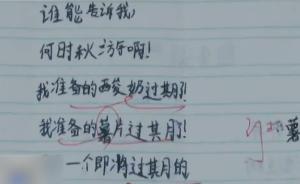 谁能告诉我，
何时秋游啊！
我准备的酸奶过期了！
我准备的薯片过期了！
一个即将过期的
薯